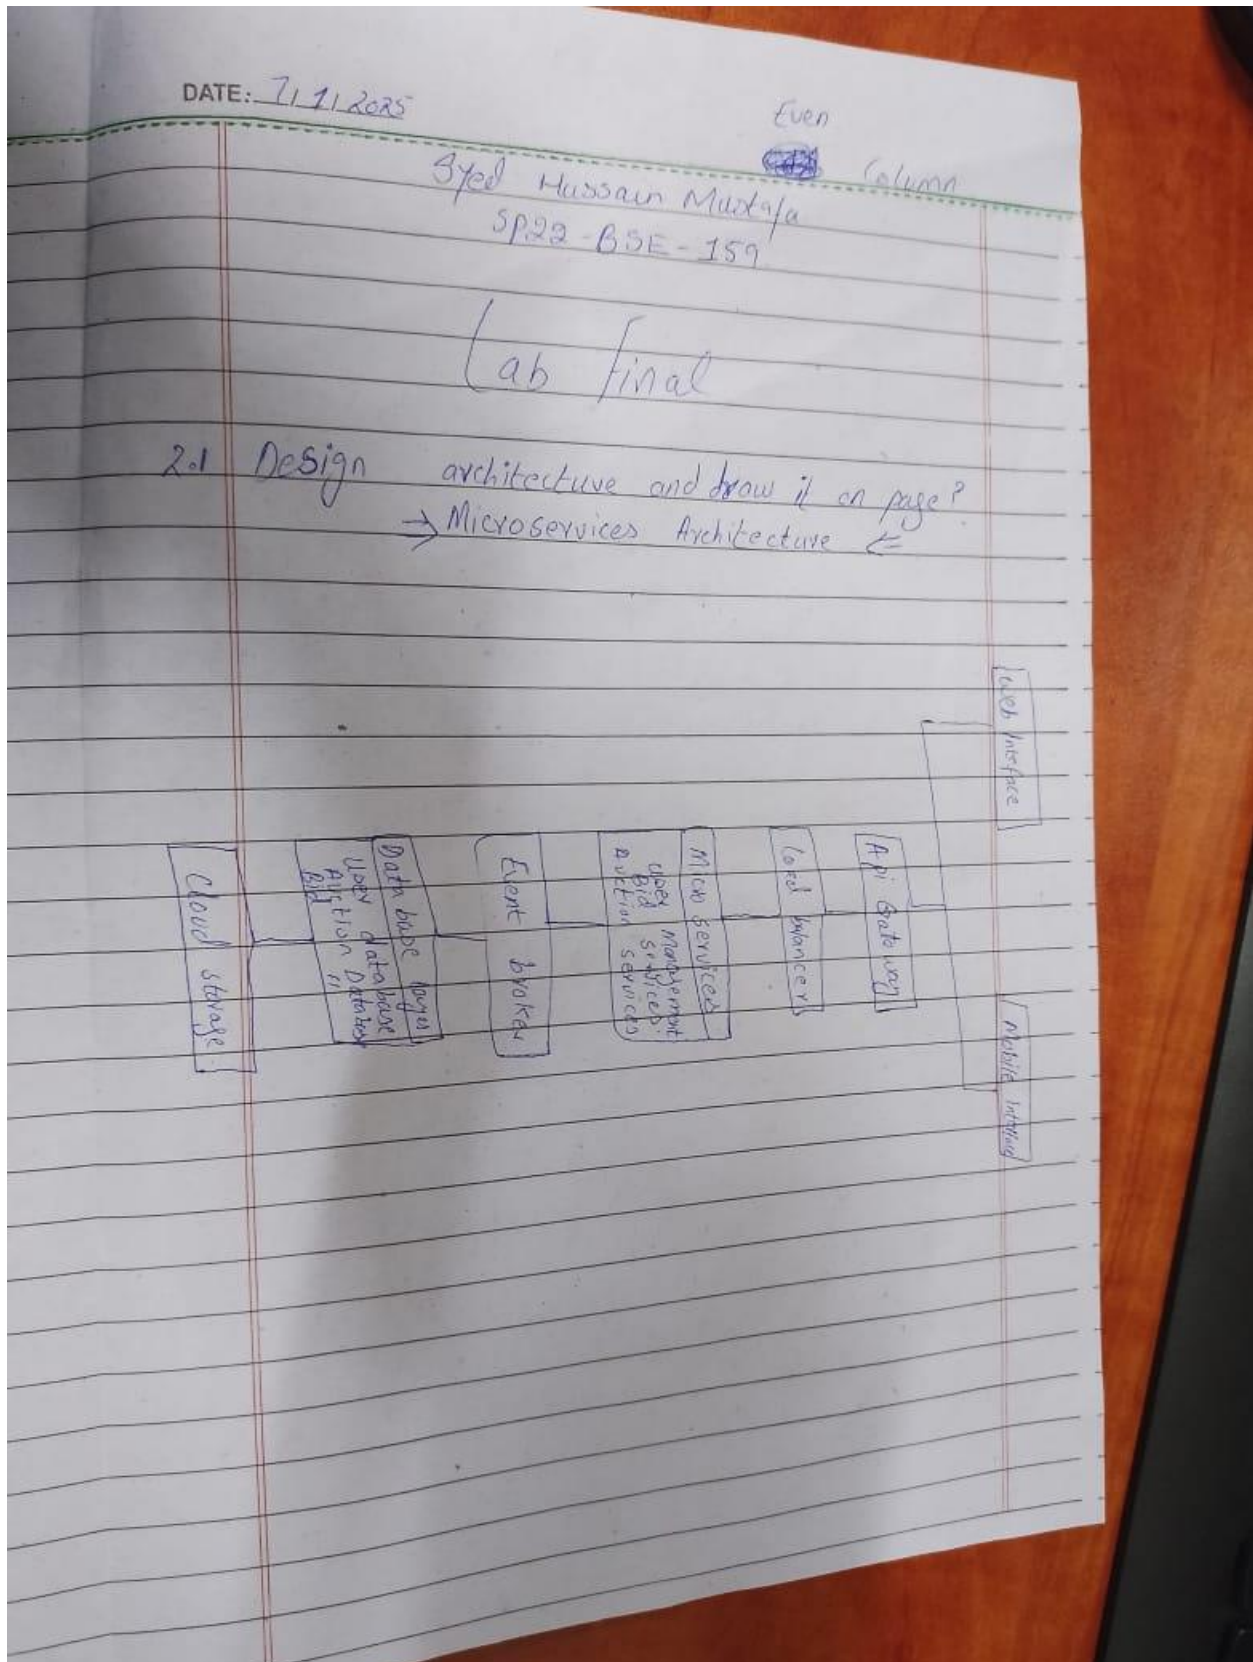 DATE: 7/1/2025
Even
Column
Syed Hussain Mustafa
SP22-BSE-159
Lab Final
2.1 Design architecture and draw it on page?
→ Microservices Architecture ⇐
Web Interface
Mobile Interface
Api Gateway
Load balancer
Micro services
User Management
Bid Services
Auction Services
Event broker
Data base layer
User database
Auction Database
Bid "
Cloud storage